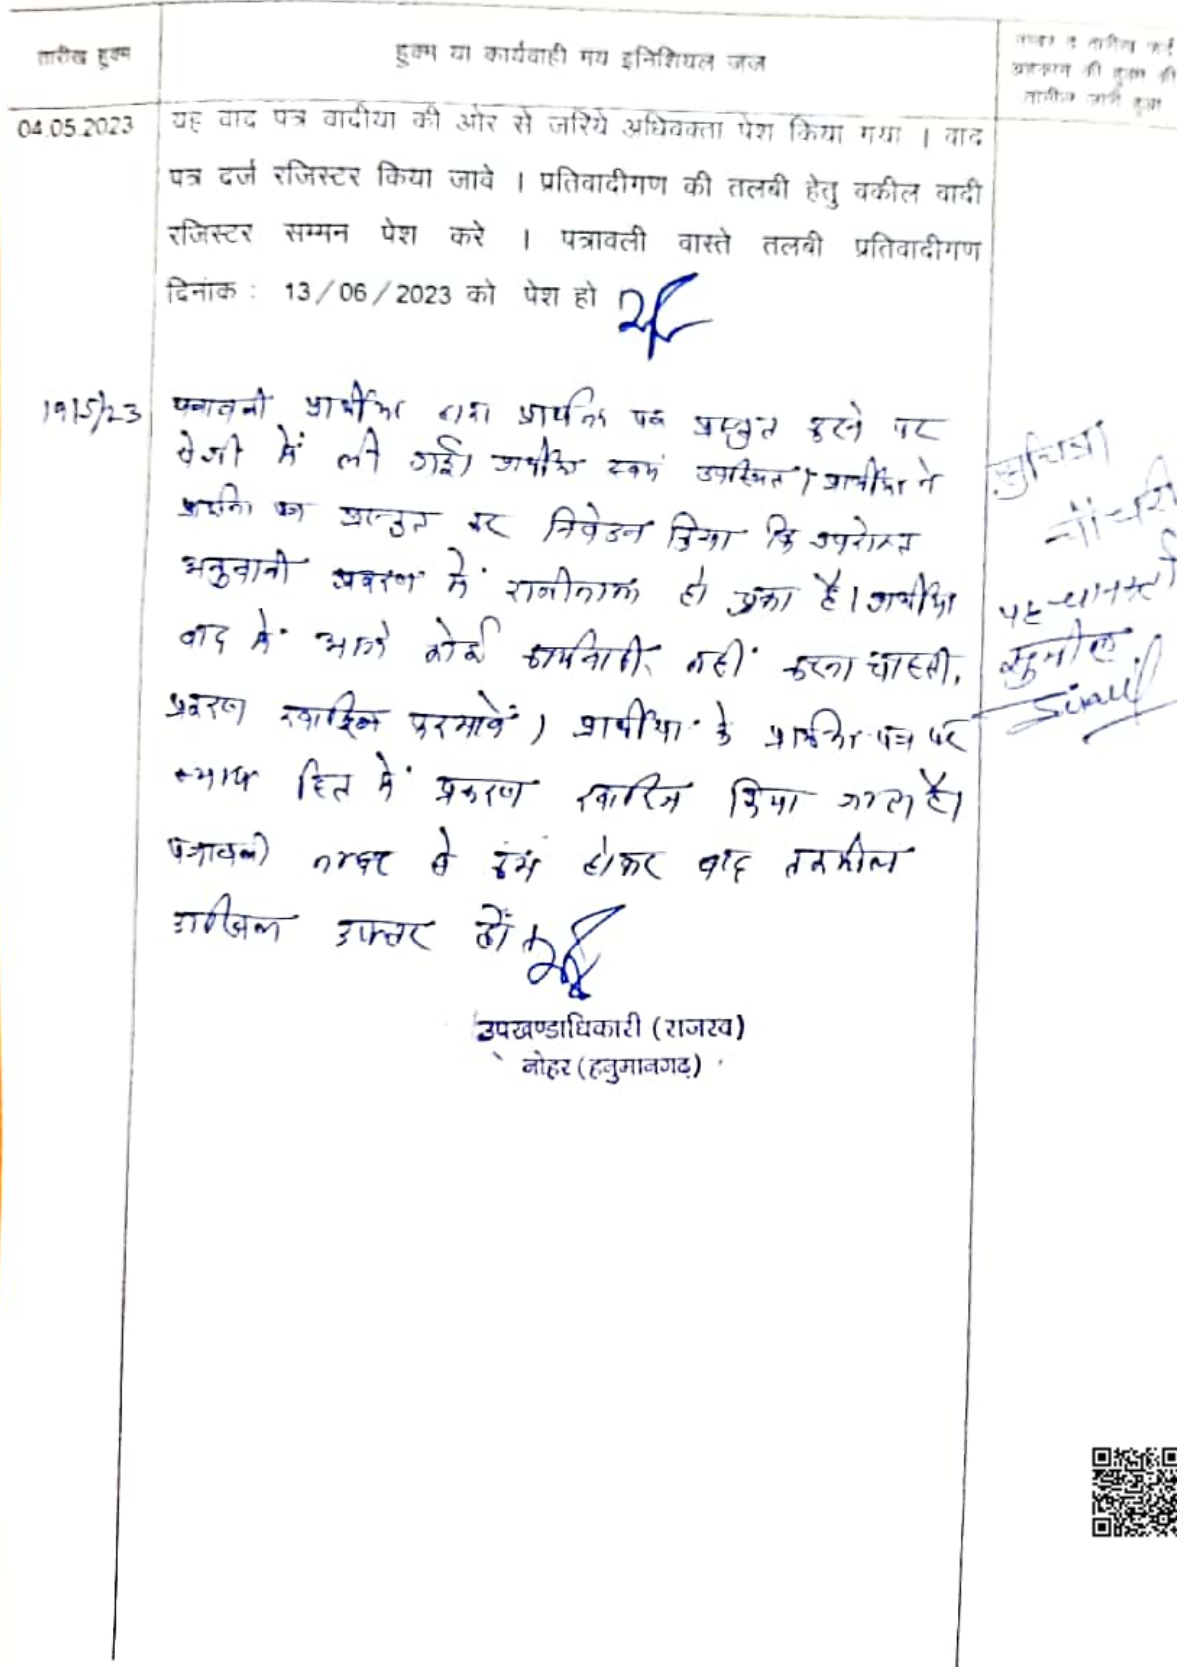 तारीख हुक्म
हुक्म या कार्यवाही मय इनिशियल जज
नम्बर व तारीख
अहकाम की हुक्म की
तामील जारी हुआ
04.05.2023
यह वाद पत्र वादीया की ओर से जरिये अधिवक्ता पेश किया गया । वाद
पत्र दर्ज रजिस्टर किया जावे । प्रतिवादीगण की तलबी हेतु वकील वादी
रजिस्टर सम्मन पेश करे । पत्रावली वास्ते तलबी प्रतिवादीगण
दिनांक : 13/06/2023 को पेश हो
19/5/23
पत्रावली प्रार्थीया द्वारा प्रार्थना पत्र प्रस्तुत करने पर
पेशी में ली गई। प्रार्थीया स्वयं उपस्थित। प्रार्थीया ने
प्रार्थना पत्र प्रस्तुत कर निवेदन किया कि उपरोक्त
प्रकरण में राजीनामा हो चुका है। प्रार्थीया
वाद में आगे कोई कार्यवाही नहीं करना चाहती,
प्रकरण खारिज फरमावें। प्रार्थीया के प्रार्थना पत्र पर
न्याय हित में प्रकरण खारिज किया जाता है।
पत्रावली नम्बर से कम होकर बाद तकमील
दाखिल दफ्तर हों।
सुचित्रा
चौधरी
पहचानकर्ता
सुनील
उपखण्डाधिकारी (राजस्व)
नोहर (हनुमानगढ़)